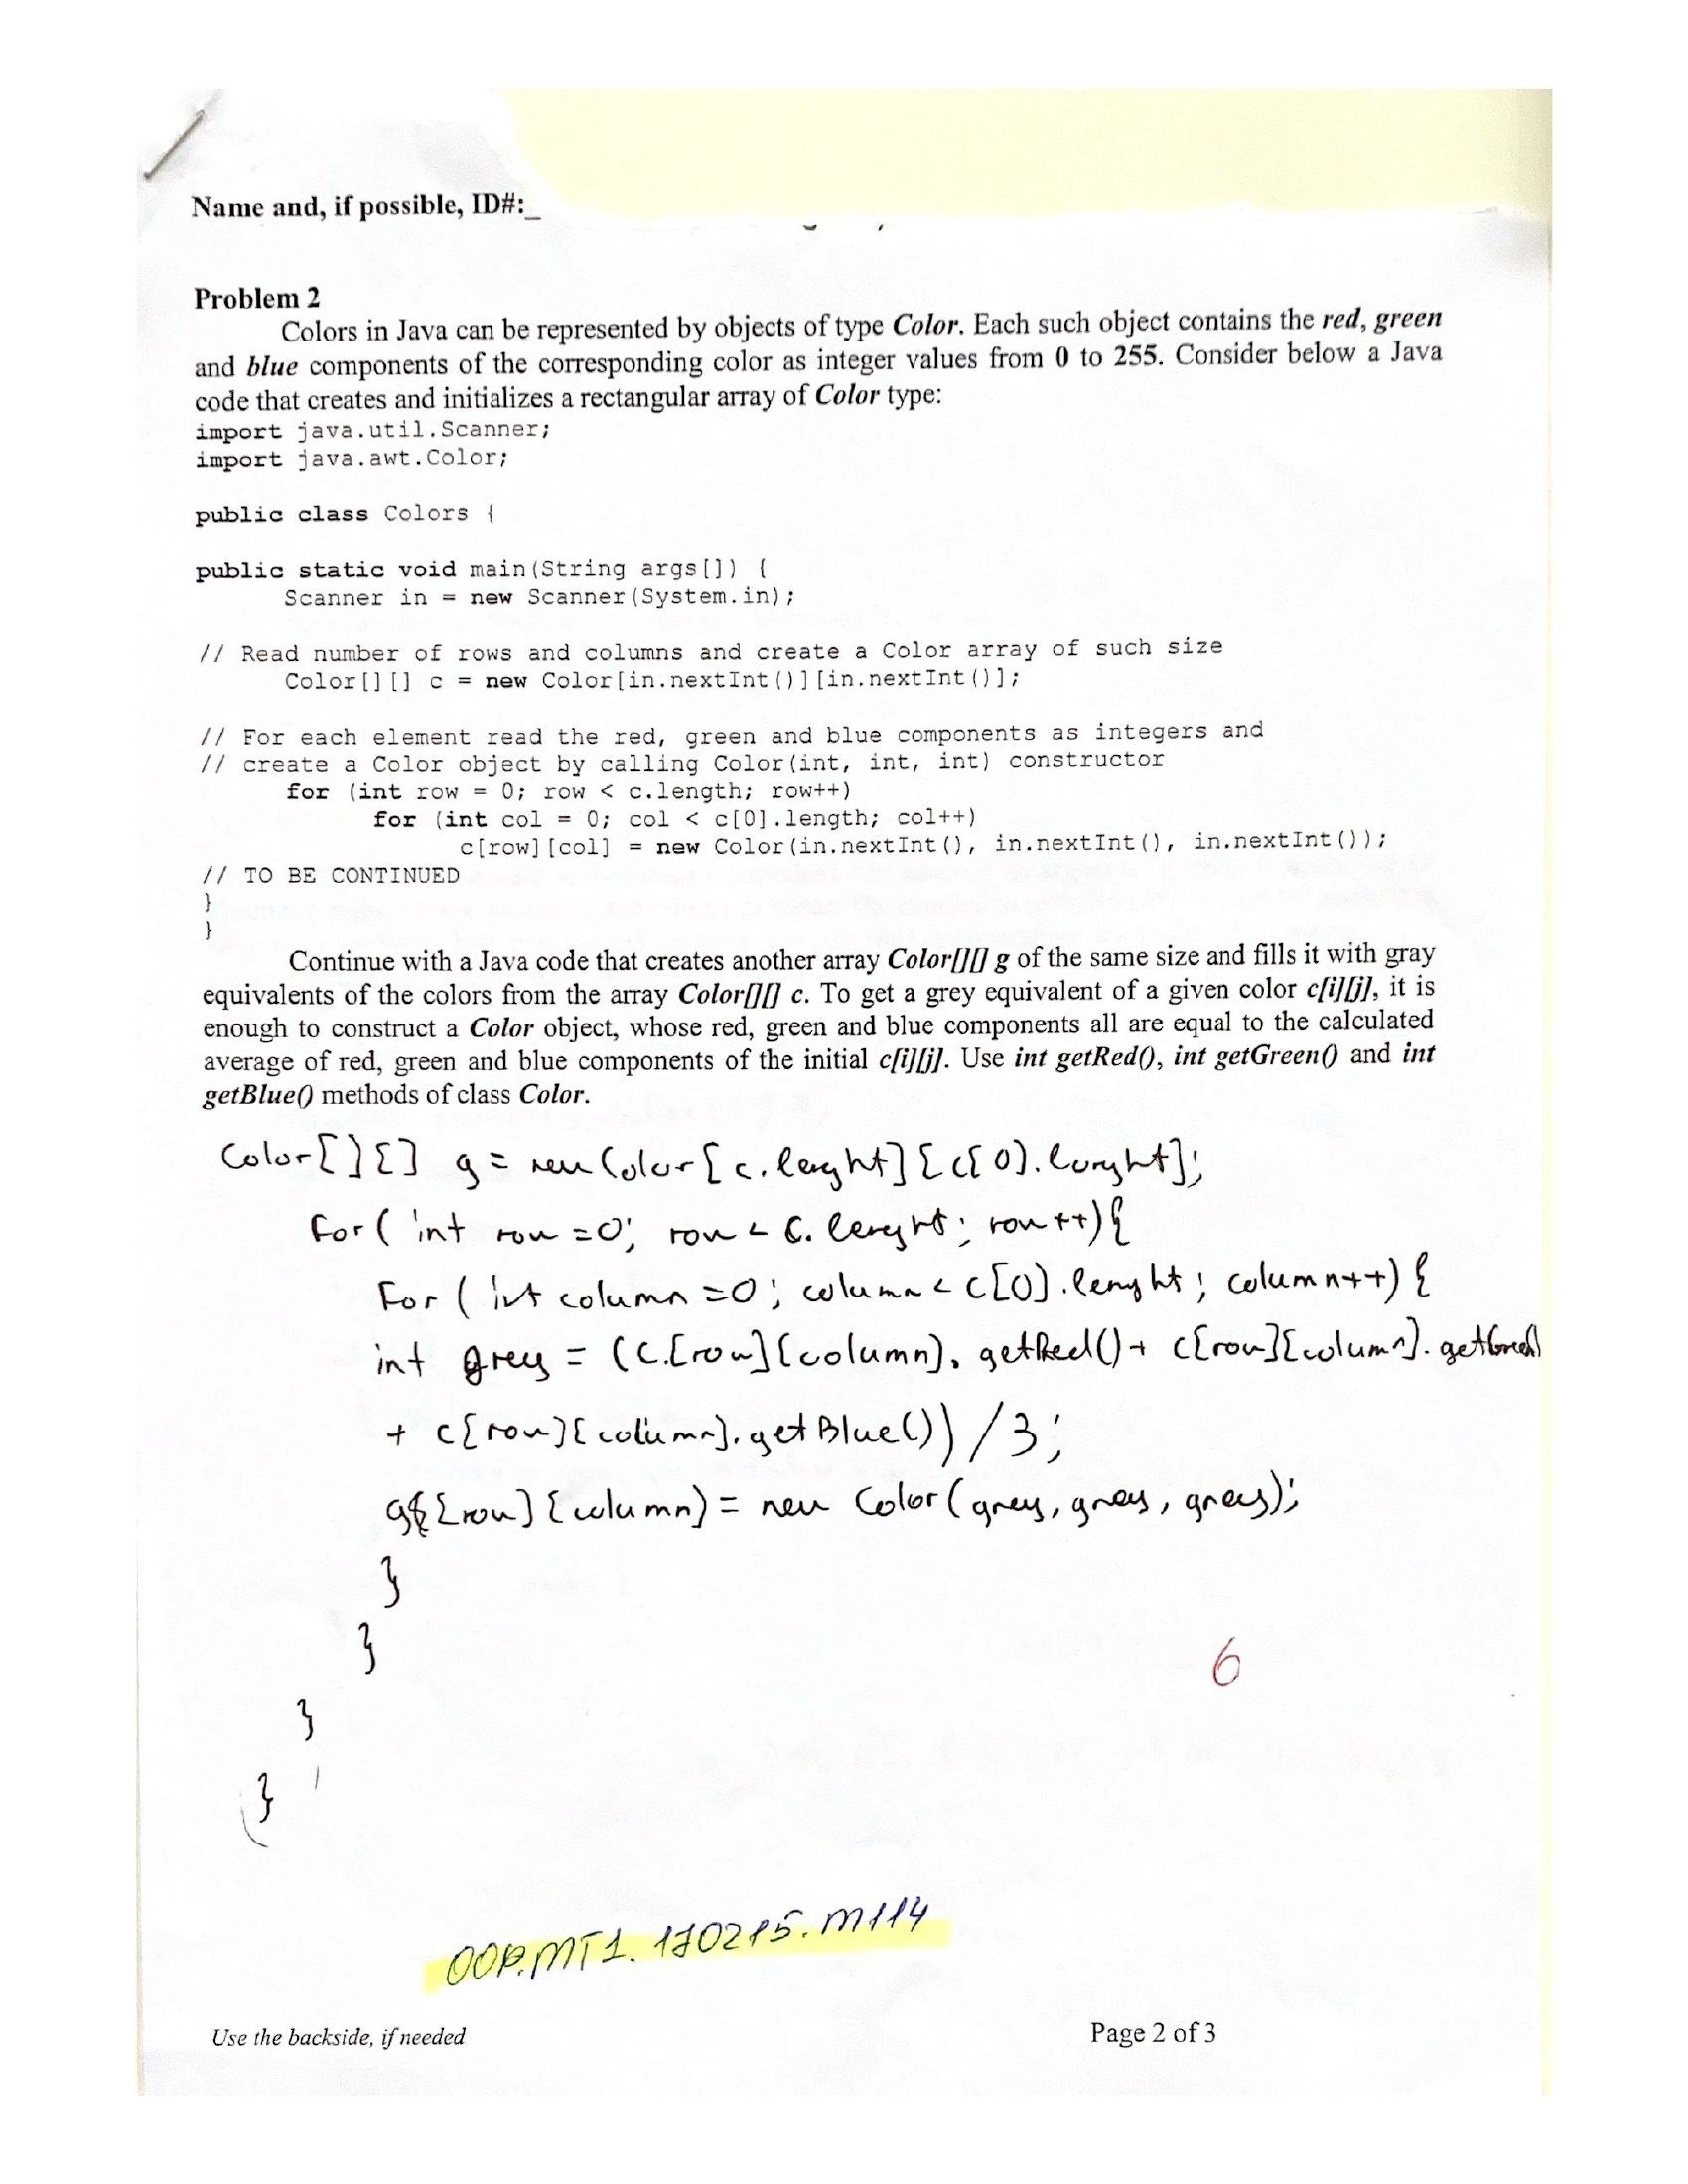 Name and, if possible, ID#:_
Problem 2
Colors in Java can be represented by objects of type Color. Each such object contains the red, green
and blue components of the corresponding color as integer values from 0 to 255. Consider below a Java
code that creates and initializes a rectangular array of Color type:
import java.util.Scanner;
import java.awt.Color;
public class Colors {
public static void main(String args[]) {
Scanner in = new Scanner(System.in);
// Read number of rows and columns and create a Color array of such size
Color[][] c = new Color[in.nextInt()][in.nextInt()];
// For each element read the red, green and blue components as integers and
// create a Color object by calling Color(int, int, int) constructor
for (int row = 0; row < c.length; row++)
for (int col = 0; col < c[0].length; col++)
c[row][col] = new Color(in.nextInt(), in.nextInt(), in.nextInt());
// TO BE CONTINUED
}
}
Continue with a Java code that creates another array Color[][] g of the same size and fills it with gray
equivalents of the colors from the array Color[][] c. To get a grey equivalent of a given color c[i][j], it is
enough to construct a Color object, whose red, green and blue components all are equal to the calculated
average of red, green and blue components of the initial c[i][j]. Use int getRed(), int getGreen() and int
getBlue() methods of class Color.
Color[][] g = new Color[c.lenght][c[0].lenght];
for( int row =0; row < c.lenght; row++){
for( int column =0; column < c[0].lenght; column++) {
int grey = (c.[row][column].getRed()+ c[row][column].getGreen()
+ c[row][column].getBlue()) /3;
g[row][column] = new Color(grey, grey, grey);
}
}
6
}
}
OOP.MT1.170215.M114
Use the backside, if needed
Page 2 of 3